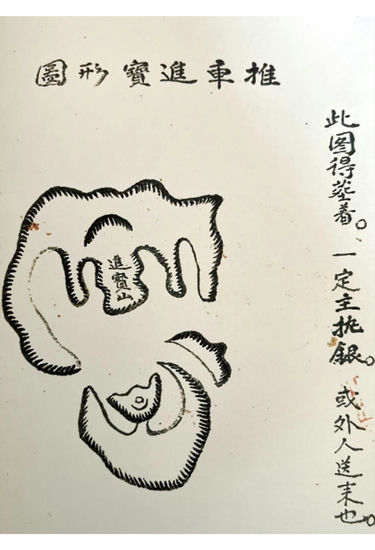 推車進寶形圖
此图得塟着。一定主挑銀。或外人送来也。
進寶山